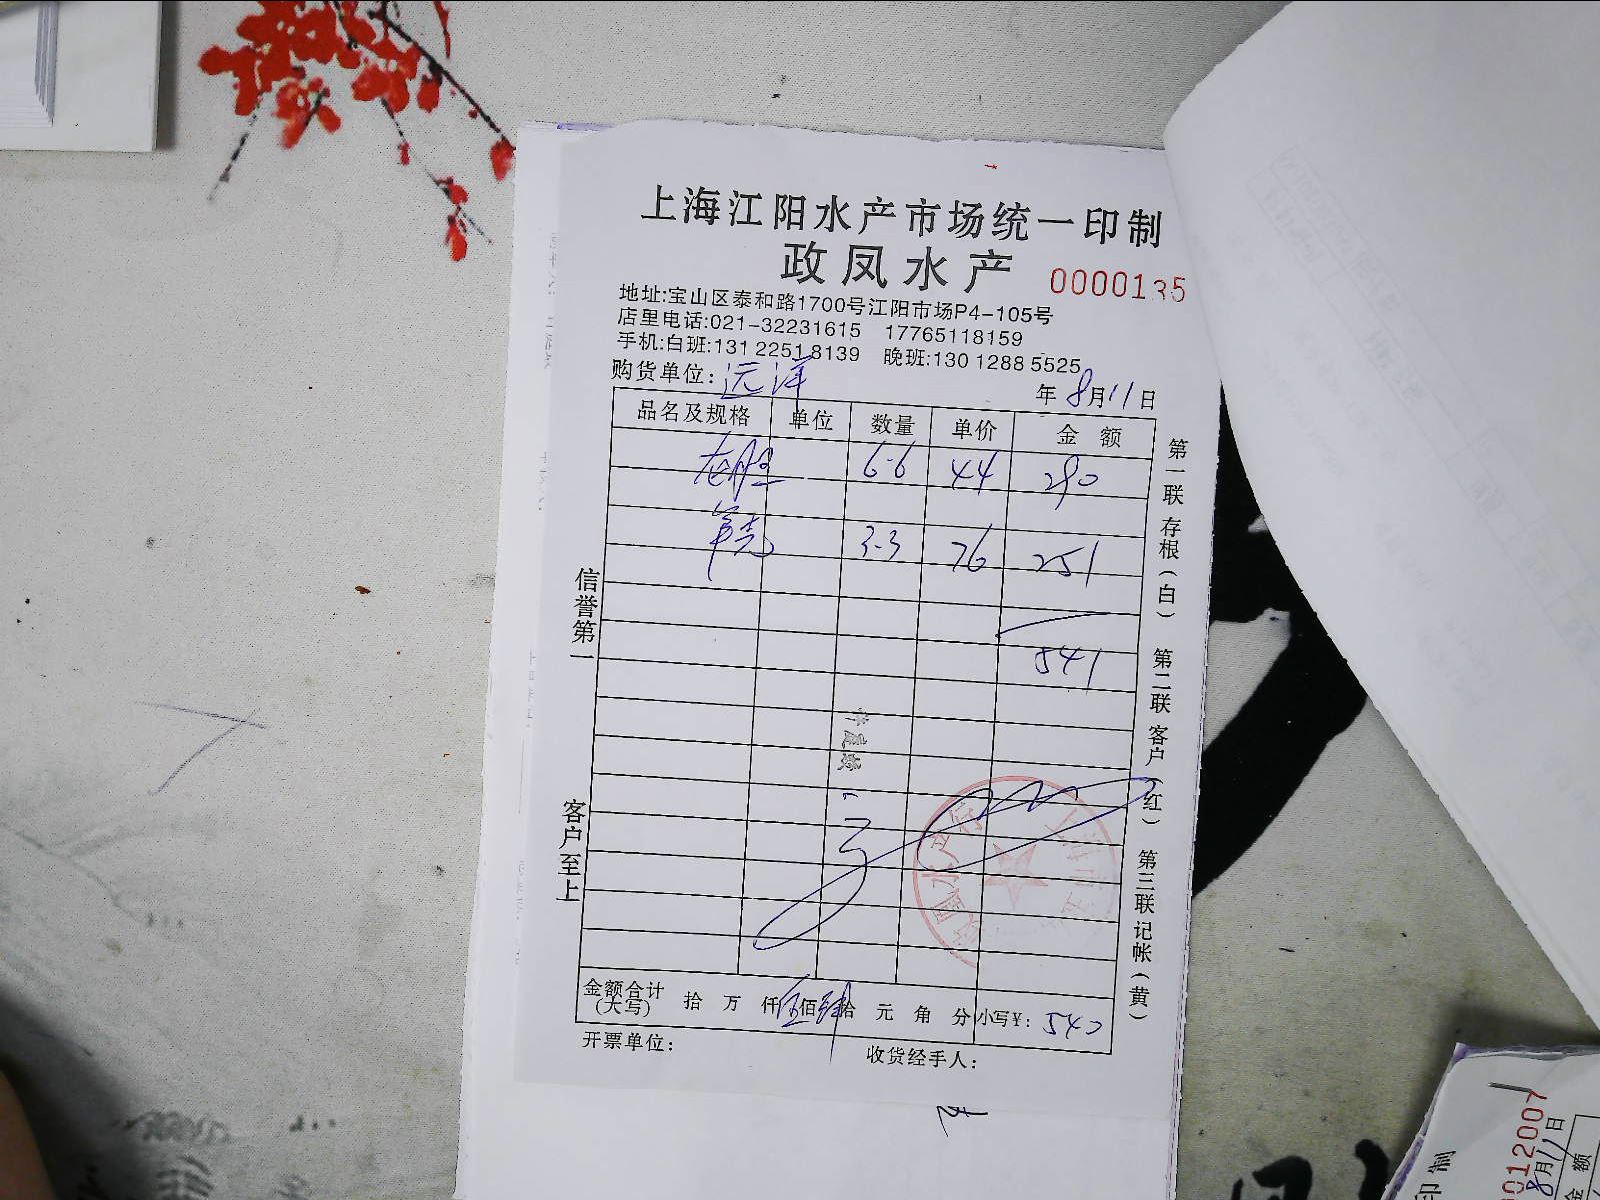 上海江阳水产市场统一印制
政凤水产 0000135
地址:宝山区泰和路1700号江阳市场P4-105号
店里电话:021-32231615 17765118159
手机:白班:131 2251 8139 晚班:130 1288 5525
购货单位: 远洋 年 8月11日
品名及规格 单位 数量 单价 金 额
龙胆 6.6 44 290
3.3 76 251
541
信誉第一
客户至上
第一联 存根(白) 第二联 客户(红) 第三联 记帐(黄)
金额合计(大写) 拾 万 仟伍佰肆拾 元 角 分 小写¥: 540
开票单位: 收货经手人:
印制
0012007
8月11日
金 额